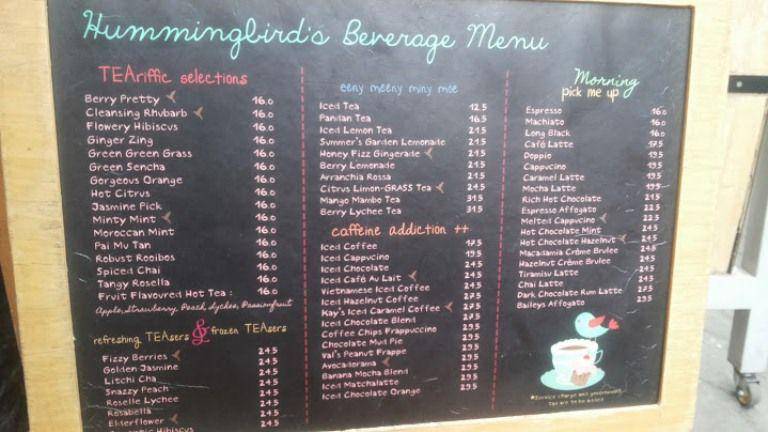 Hummingbird's Beverage Menu
TEAriffic selections
Berry Pretty 16.0
Cleansing Rhubarb 16.0
Flowery Hibiscus 16.0
Ginger Zing 16.0
Green Green Grass 16.0
Green Sencha 16.0
Gorgeous Orange 16.0
Hot Citrus 16.0
Jasmine Pick 16.0
Minty Mint 16.0
Moroccan Mint 16.0
Pai Mu Tan 16.0
Robust Rooibos 16.0
Spiced Chai 16.0
Tangy Rosella 16.0
Fruit Flavoured Hot Tea : 16.0
Apple, Strawberry, Peach, Lychee, Passionfruit
refreshing TEAsers & frozen TEAsers
Fizzy Berries 24.5
Golden Jasmine 24.5
Litchi Cha 24.5
Snazzy Peach 24.5
Roselle Lychee 24.5
Rosabella 24.5
Elderflower 24.5
Hibiscus
eeny meeny miny moe
Iced Tea 12.5
Pandan Tea 16.5
Iced Lemon Tea 21.5
Summer's Garden Lemonade 21.5
Honey Fizz Gingerade 21.5
Berry Lemonade 24.5
Arranchia Rossa 24.5
Citrus Limon-GRASS Tea 24.5
Mango Mambo Tea 31.5
Berry Lychee Tea 31.5
caffeine addiction ++
Iced Coffee 17.5
Iced Cappucino 19.5
Iced Chocolate 24.5
Iced Café Au Lait 24.5
Vietnamese Iced Coffee 24.5
Iced Hazelnut Coffee 27.5
Kay's Iced Caramel Coffee 27.5
Iced Chocolate Blend 27.5
Coffee Chips Frappuccino 29.5
Chocolate Mud Pie 29.5
Val's Peanut Frappe 29.5
Avocadorama 29.5
Banana Mocha Blend 29.5
Iced Matchalatte 29.5
Iced Chocolate Orange 29.5
Morning
pick me up
Espresso 16.0
Machiato 16.0
Long Black 16.0
Café Latte 17.5
Doppio 19.5
Cappucino 19.5
Caramel Latte 19.5
Mocha Latte 19.5
Rich Hot Chocolate 21.5
Espresso Affogato 22.5
Melted Cappucino 22.5
Hot Chocolate Mint 24.5
Hot Chocolate Hazelnut 24.5
Macadamia Crême Brulee 24.5
Hazelnut Crême Brulee 24.5
Tiramisu Latte 24.5
Chai Latte 24.5
Dark Chocolate Rum Latte 27.5
Baileys Affogato 29.5
*Service charge and government
tax are to be added